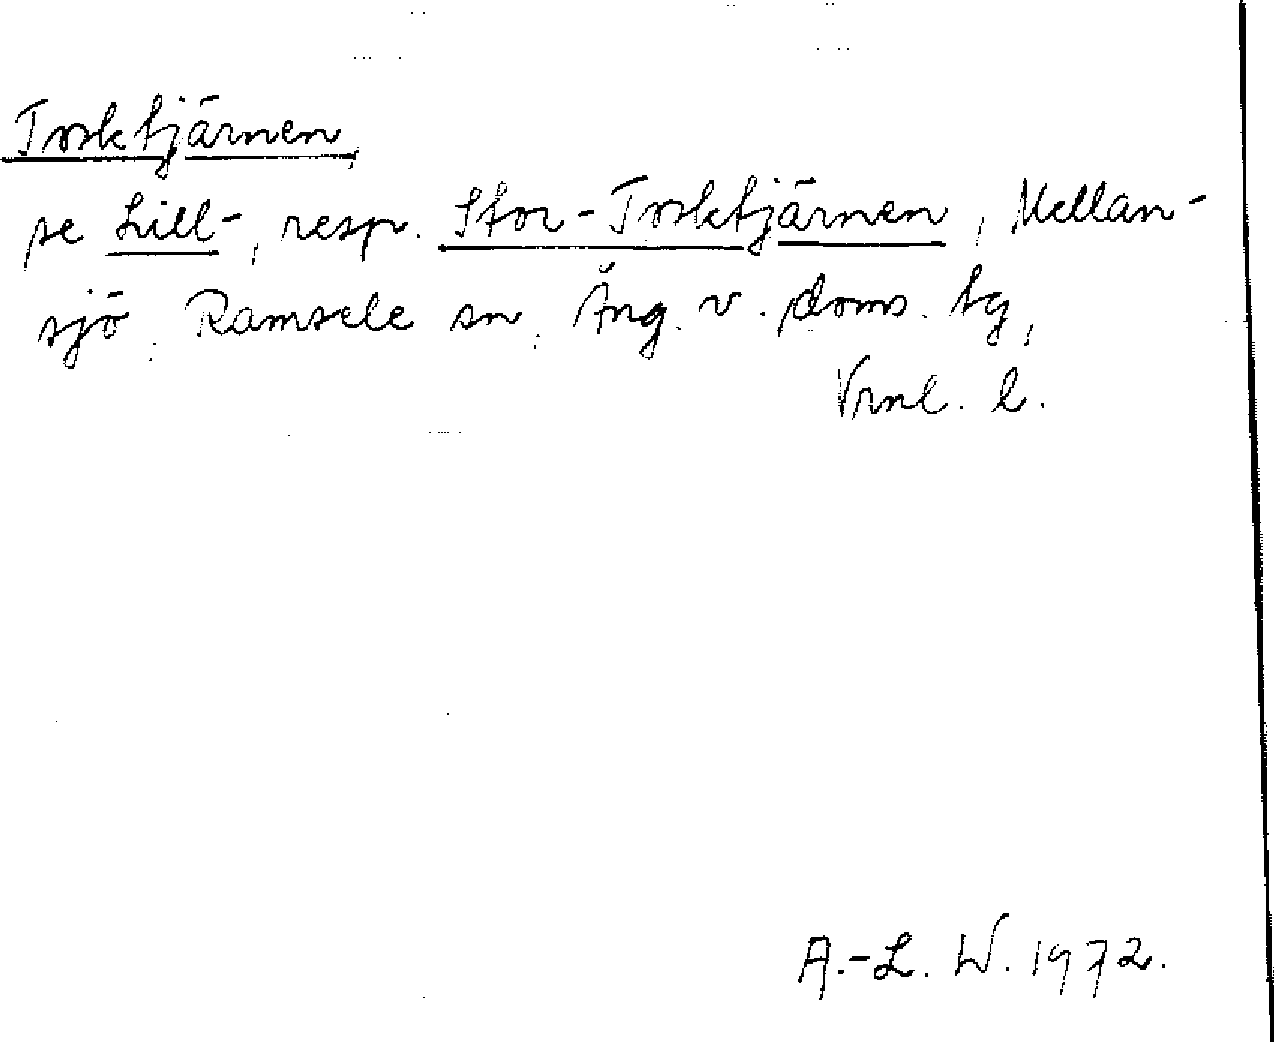 Torsktjärnen
se Lill-, resp. Stor-Torsktjärnen, Mellan-
sjö, Ramsele sn, Ång. v. doms. tg,
Vrnl. l.
A.-L. W. 1972.